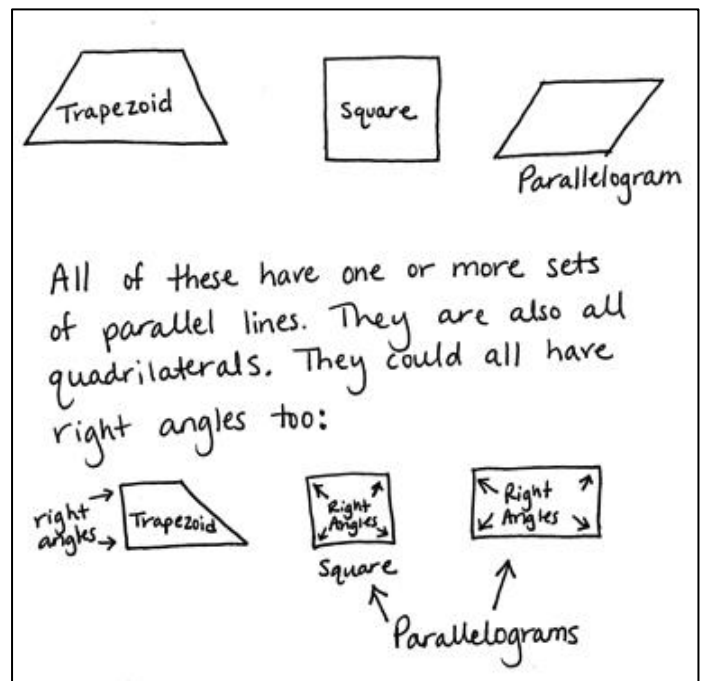 Trapezoid
Square
Parallelogram
All of these have one or more sets
of parallel lines. They are also all
quadrilaterals. They could all have
right angles too:
right
angles
Trapezoid
Right
Angles
Square
Right
Angles
Parallelograms